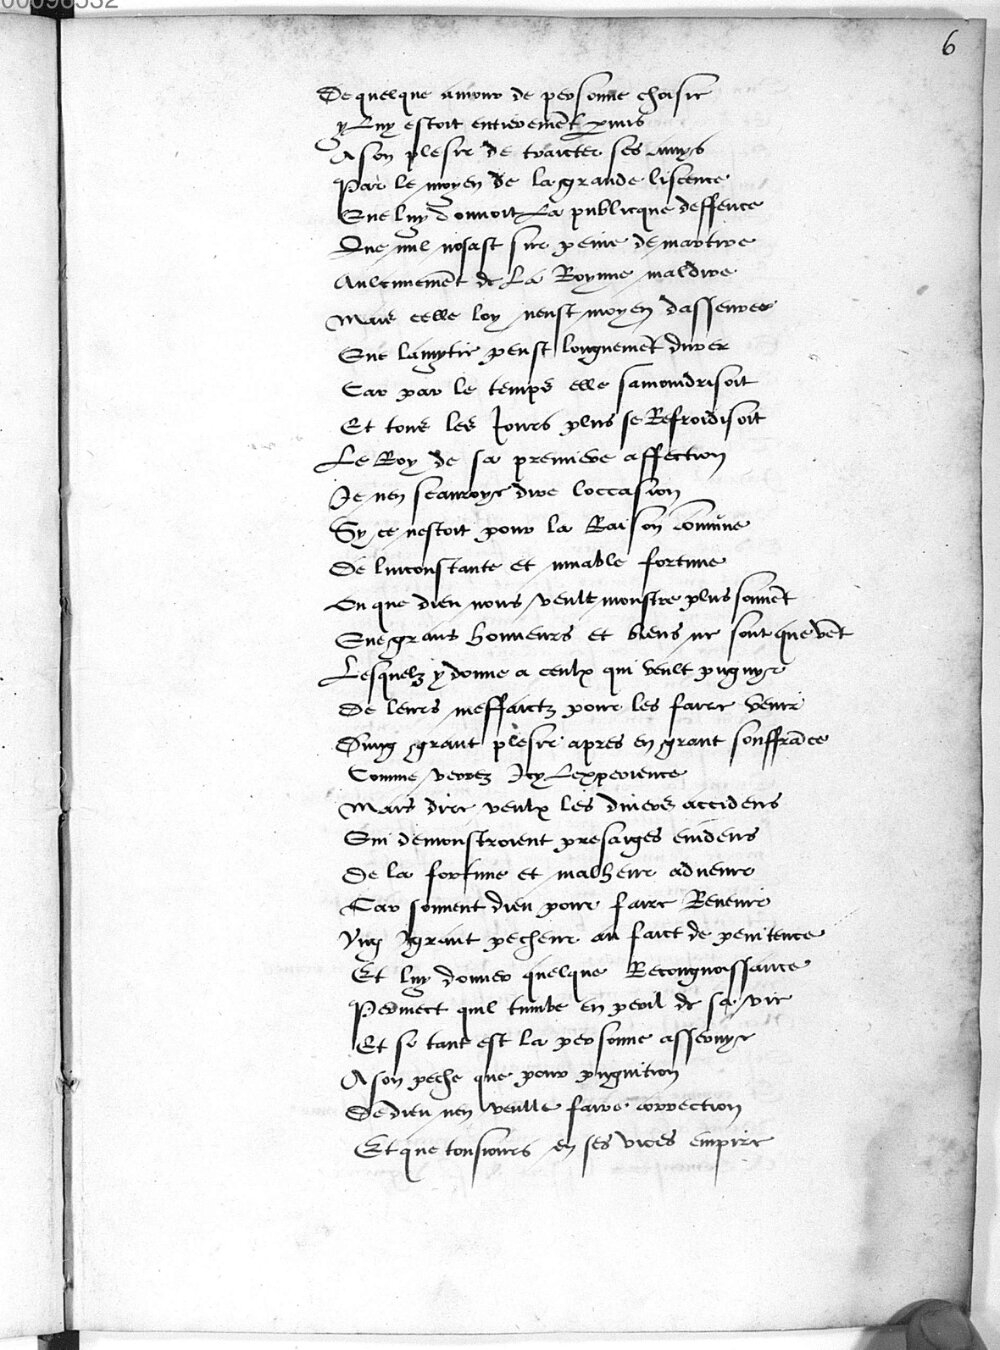 00098332
6
De quelque amour de personne choisir
y Luy estoit entierement permis
A son plesir de traicter ses amys
Par le moyen de la grande liscence
Que luy donnoit La publicque deffence
Que nul nosast sur peine de martire
Aulcunement de La Royne maldire
Mais celle loy neust moyen dasseurer
Que lamytie peust longuement durer
Car par le temps elle samoindrisoit
Et tous les Jours plus se Refroidisoit
Le Roy de sa premiere affection
Je nen scauroye dire loccasion
Sy ce nestoit pour la Raison comune
De linconstante et muable fortune
Ou que dieu nous veult monstre plus souvent
Que grans honneurs et biens ne sont que vent
Lesquelz y donne a ceulx qui veult pugnyr
De leurs meffaictz pour les faire venir
Dung grant plesir apres en grant souffrance
Comme verrez Icy Lexperience
Mais dire veulx les divers accidens
Qui demonstroient presaiges evidens
De la fortune et malheur advenir
Car souvent dieu pour faire Revenir
Vng grant pecheur au faict de penitence
Et luy donner quelque Recongnoissance
Permect quil tumbe en peril de sa vie
Et si tant est la personne asservye
A son peche que pour pugnition
De dieu nen veulle faire correction
Et que tousiours en ses vices empire